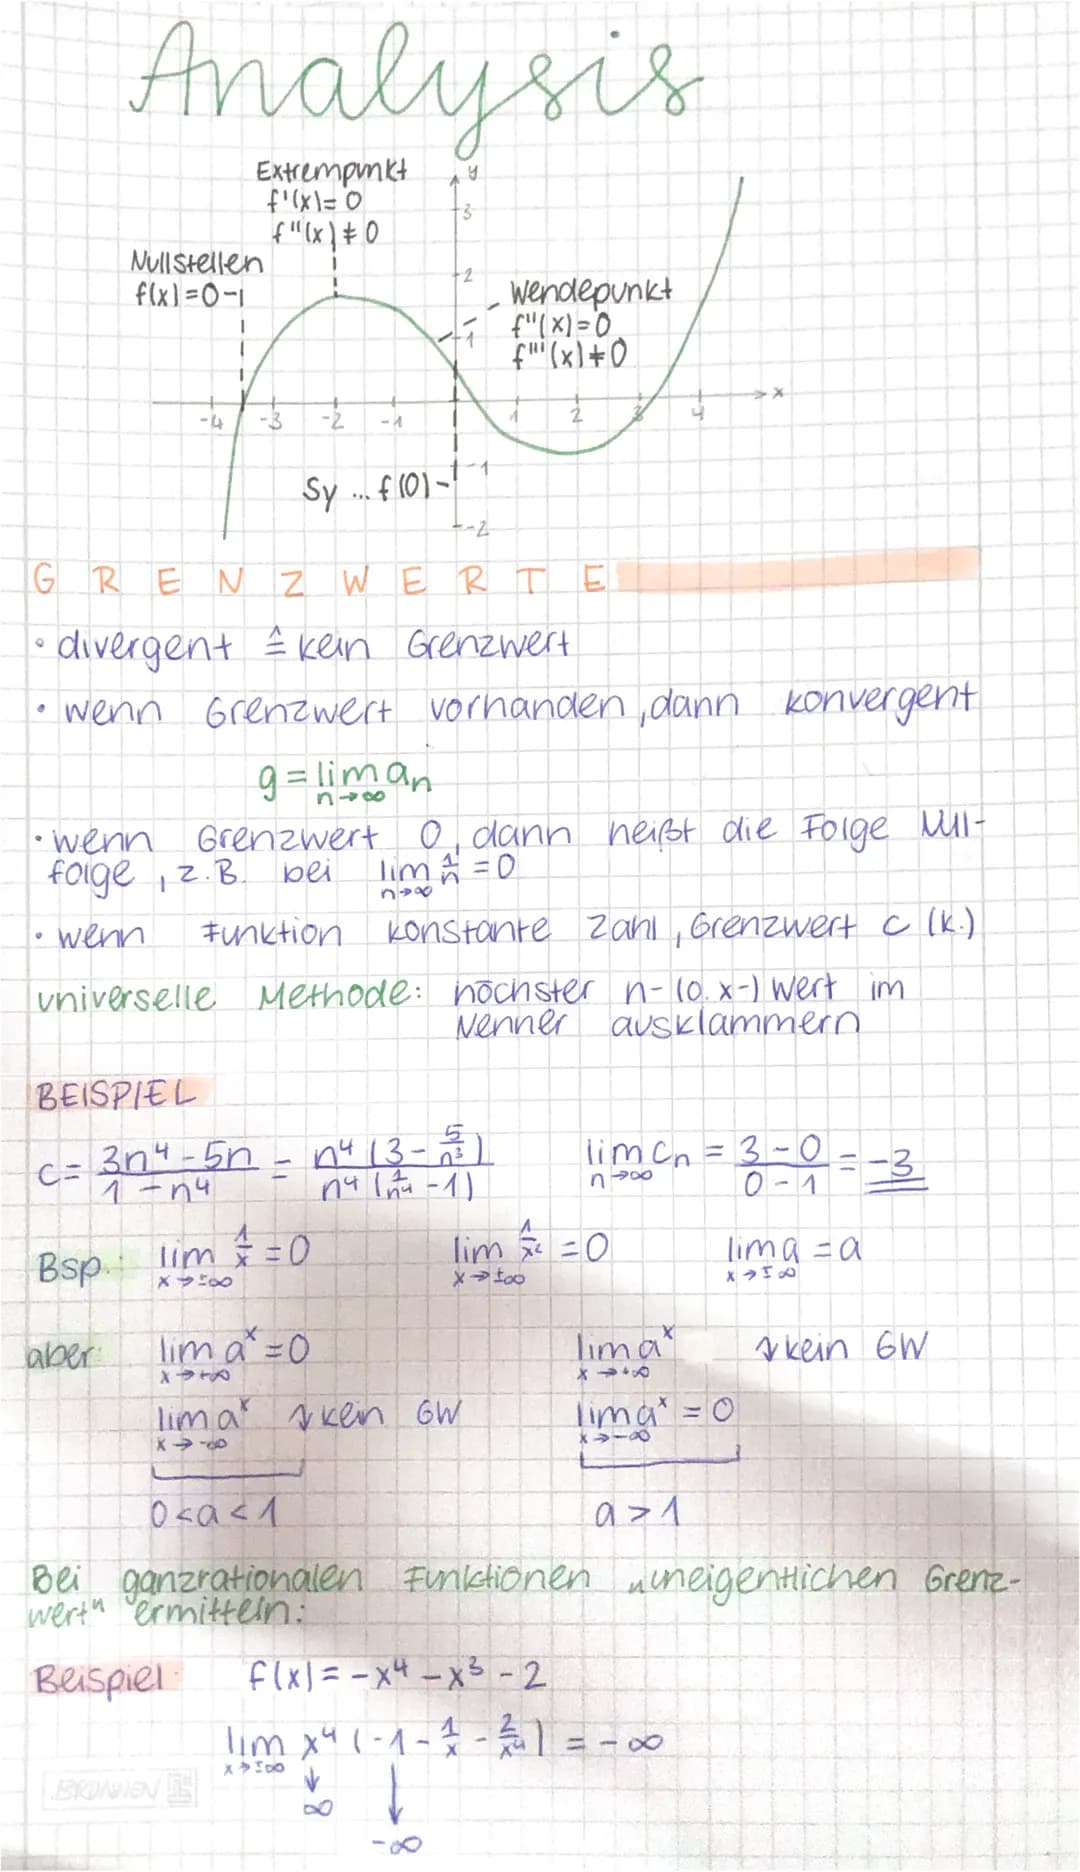 Analysis
Extrempunkt
f'(x)=0
f''(x)≠0
Nullstellen
f(x)=0
y
3
2
1
Wendepunkt
f''(x)=0
f'''(x)≠0
x
-4 -3 -2 -1 1 2 3 4
Sy ... f(0)
-1
-2
GRENZWERTE
• divergent ≙ kein Grenzwert
• wenn Grenzwert vorhanden, dann konvergent
g = lim aₙ
n→∞
• wenn Grenzwert 0, dann heißt die Folge Null-
folge, z.B. bei lim 1/n = 0
n→∞
• wenn Funktion konstante Zahl, Grenzwert c (k.)
universelle Methode: höchster n-(o. x-) Wert im
Nenner ausklammern
BEISPIEL
c = (3n⁴ - 5n)/(1 - n⁴) = n⁴(3 - 5/n³)/n⁴(1/n⁴ - 1) lim cₙ = (3 - 0)/(0 - 1) = -3
n→∞
Bsp.: lim 1/x = 0 lim 1/x² = 0 lim a = a
x→±∞ x→±∞ x→±∞
aber: lim aˣ = 0 lim aˣ ↯ kein GW
x→+∞ x→+∞
lim aˣ ↯ kein GW lim aˣ = 0
x→-∞ x→-∞
0<a<1 a>1
Bei ganzrationalen Funktionen "uneigentlichen Grenz-
wert" ermitteln:
Beispiel: f(x) = -x⁴ - x³ - 2
lim x⁴(-1 - 1/x - 2/x⁴) = -∞
x→±∞
↓ ↓
∞
-∞
BRUNNEN